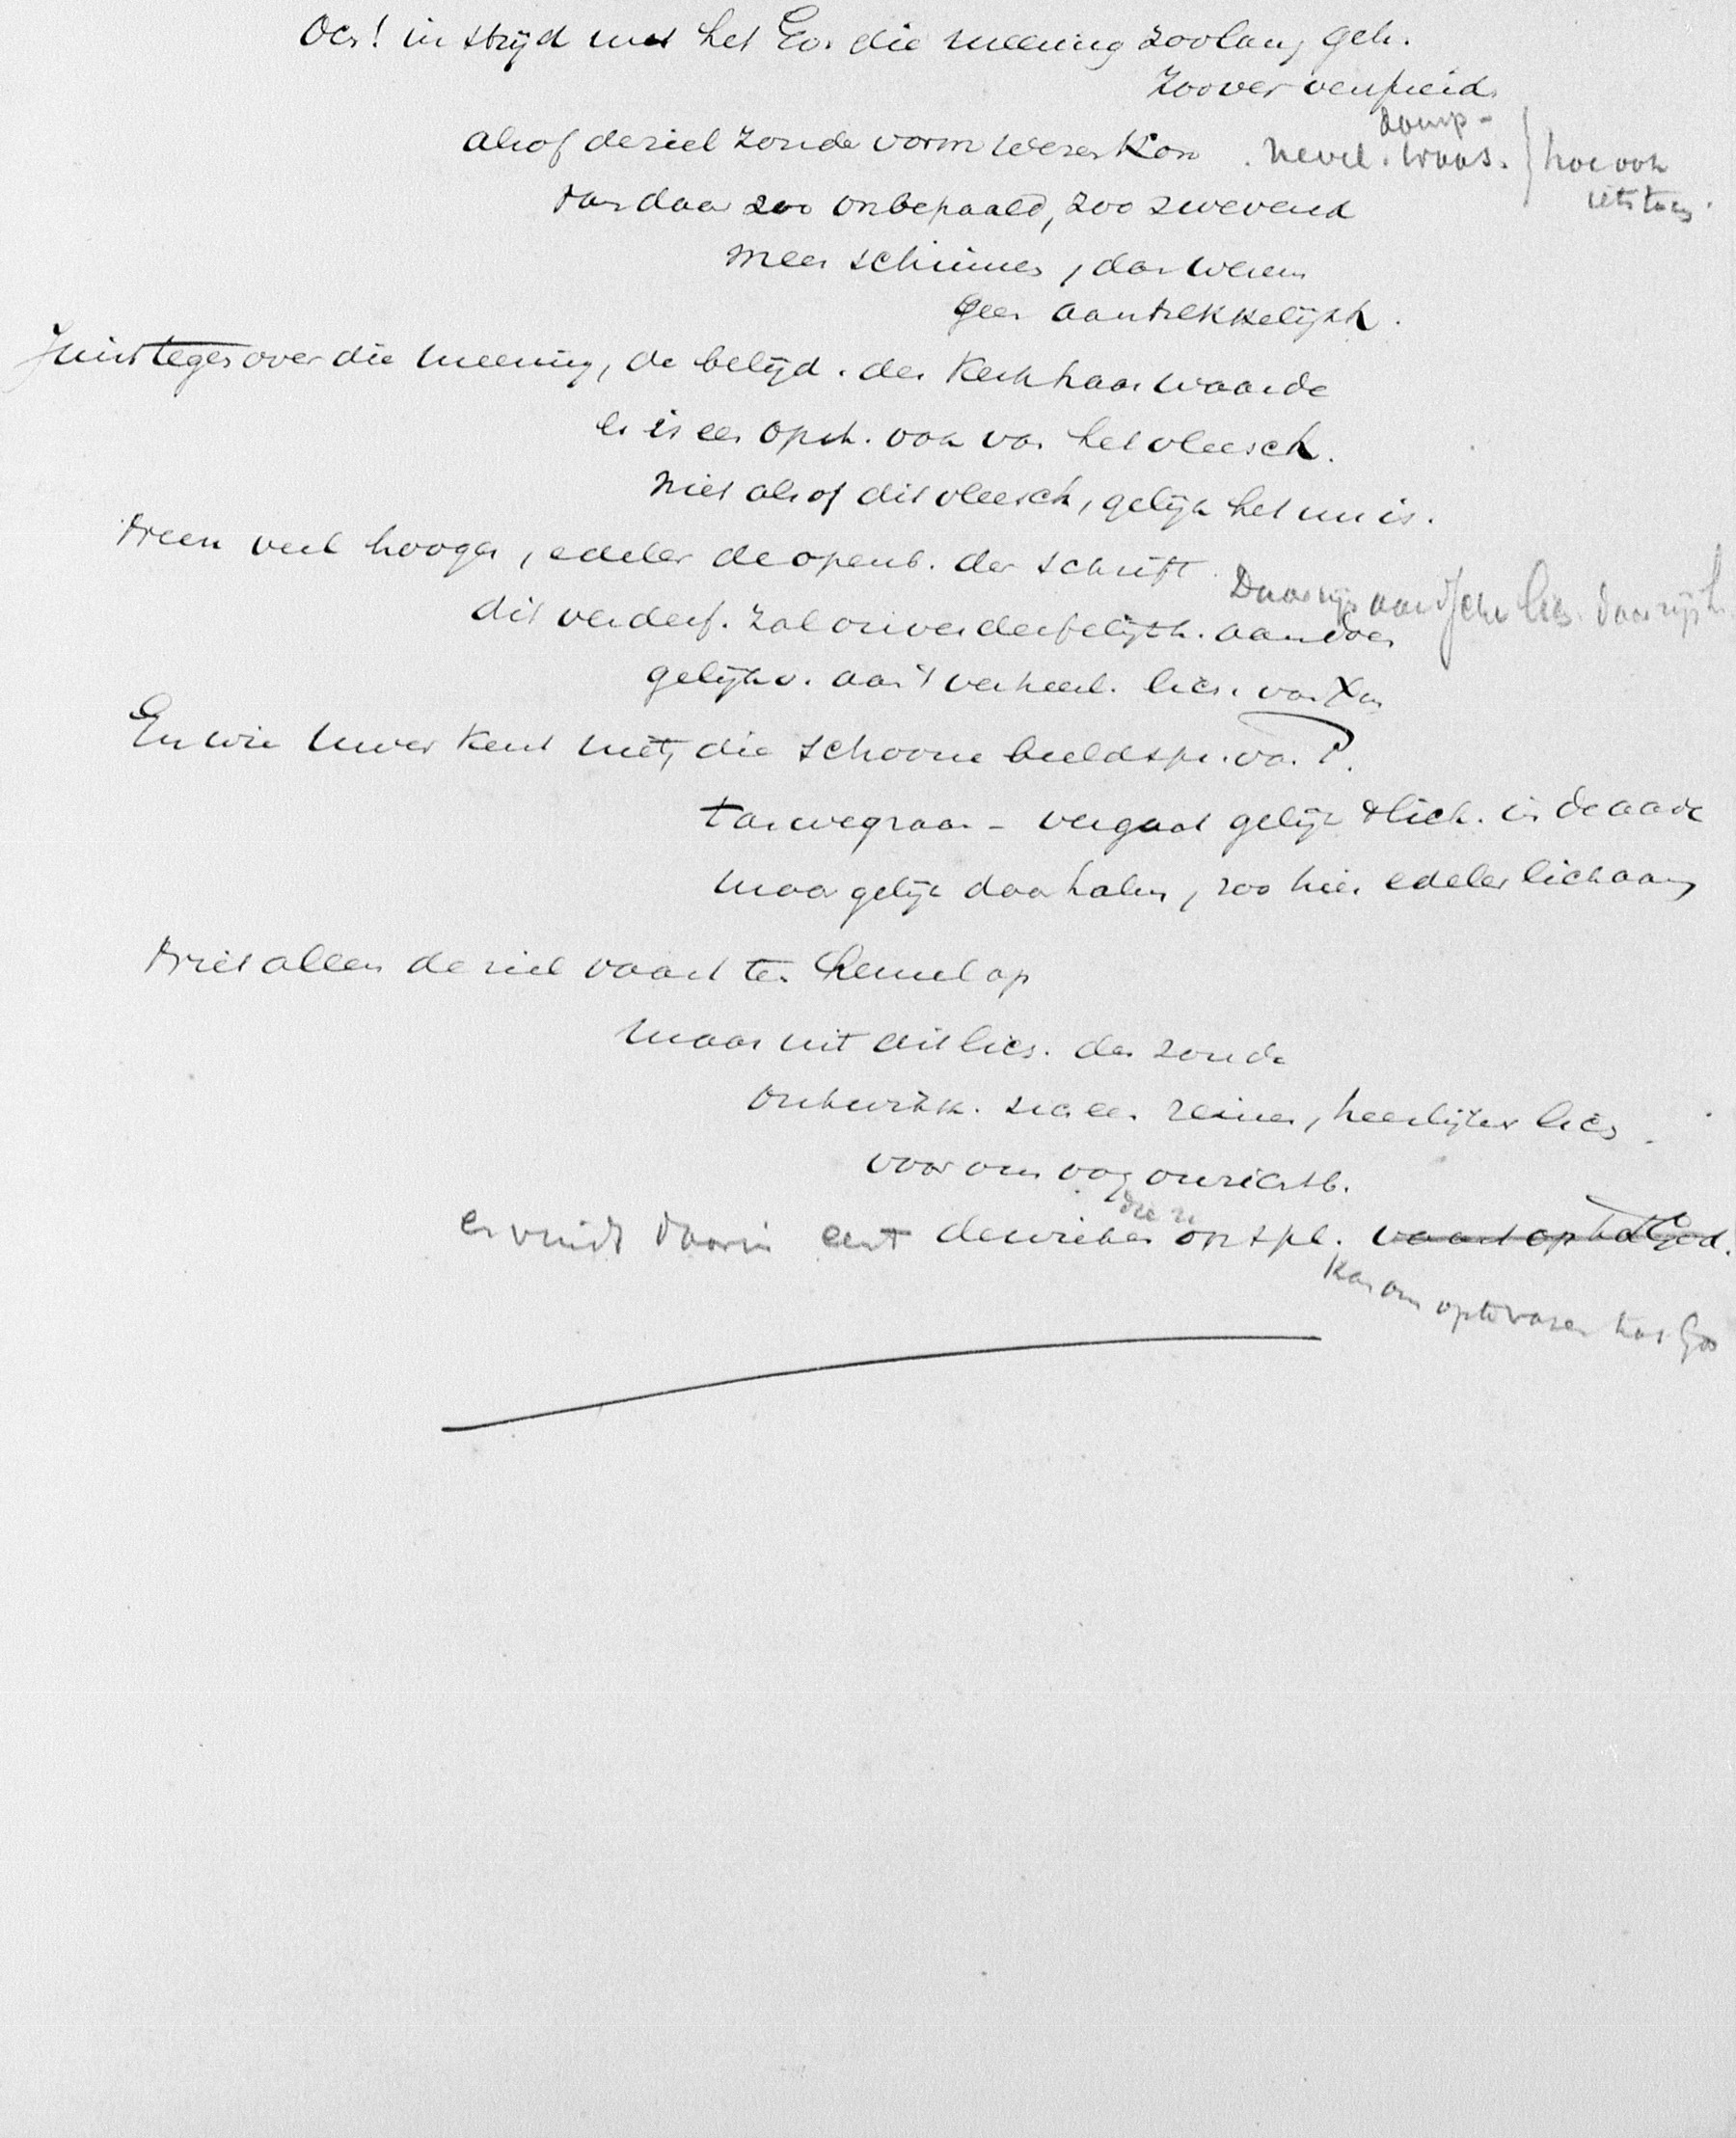 Och! in strijd met het Ev. die meening zoolang geh.
zoover verspreid
alsof de ziel zonder vorm wezen kon. nevel. waas. damp - } hoe ook
iets
van daar zoo onbepaald, zoo zwevend
meer schimmen, dan wezens
geen aantrekkelijkh.
Juist tegenover die meening, de belijd. der Kerk haar waarde
er is een opst. ook van het vleesch.
niet alsof dit vleesch, gelijk het nu is.
Neen veel hooger, edeler de openb. der schrift.
Daar rijst aardsch lich. daar rijst h
dit verderf. zal onverderfelijkh. aandoen
gelijkv. aan 't verheerl. lich. van Xus
En wie uwer kent niet, die schoone beeldspr. van P.
tarwegraan - vergaat gelijk 't lich. in de aarde
maar gelijk daar halm, zoo hier edeler lichaam
Niet alleen de ziel vaart ten hemel op
maar uit dit lich. der zonde
ontwikk. zich een reiner, heerlijker lich.
voor ons oog onzichtb.
en vindt daarin eerst de wieken die ze ontpl. vaart op tot God.
Kan om op te varen tot God